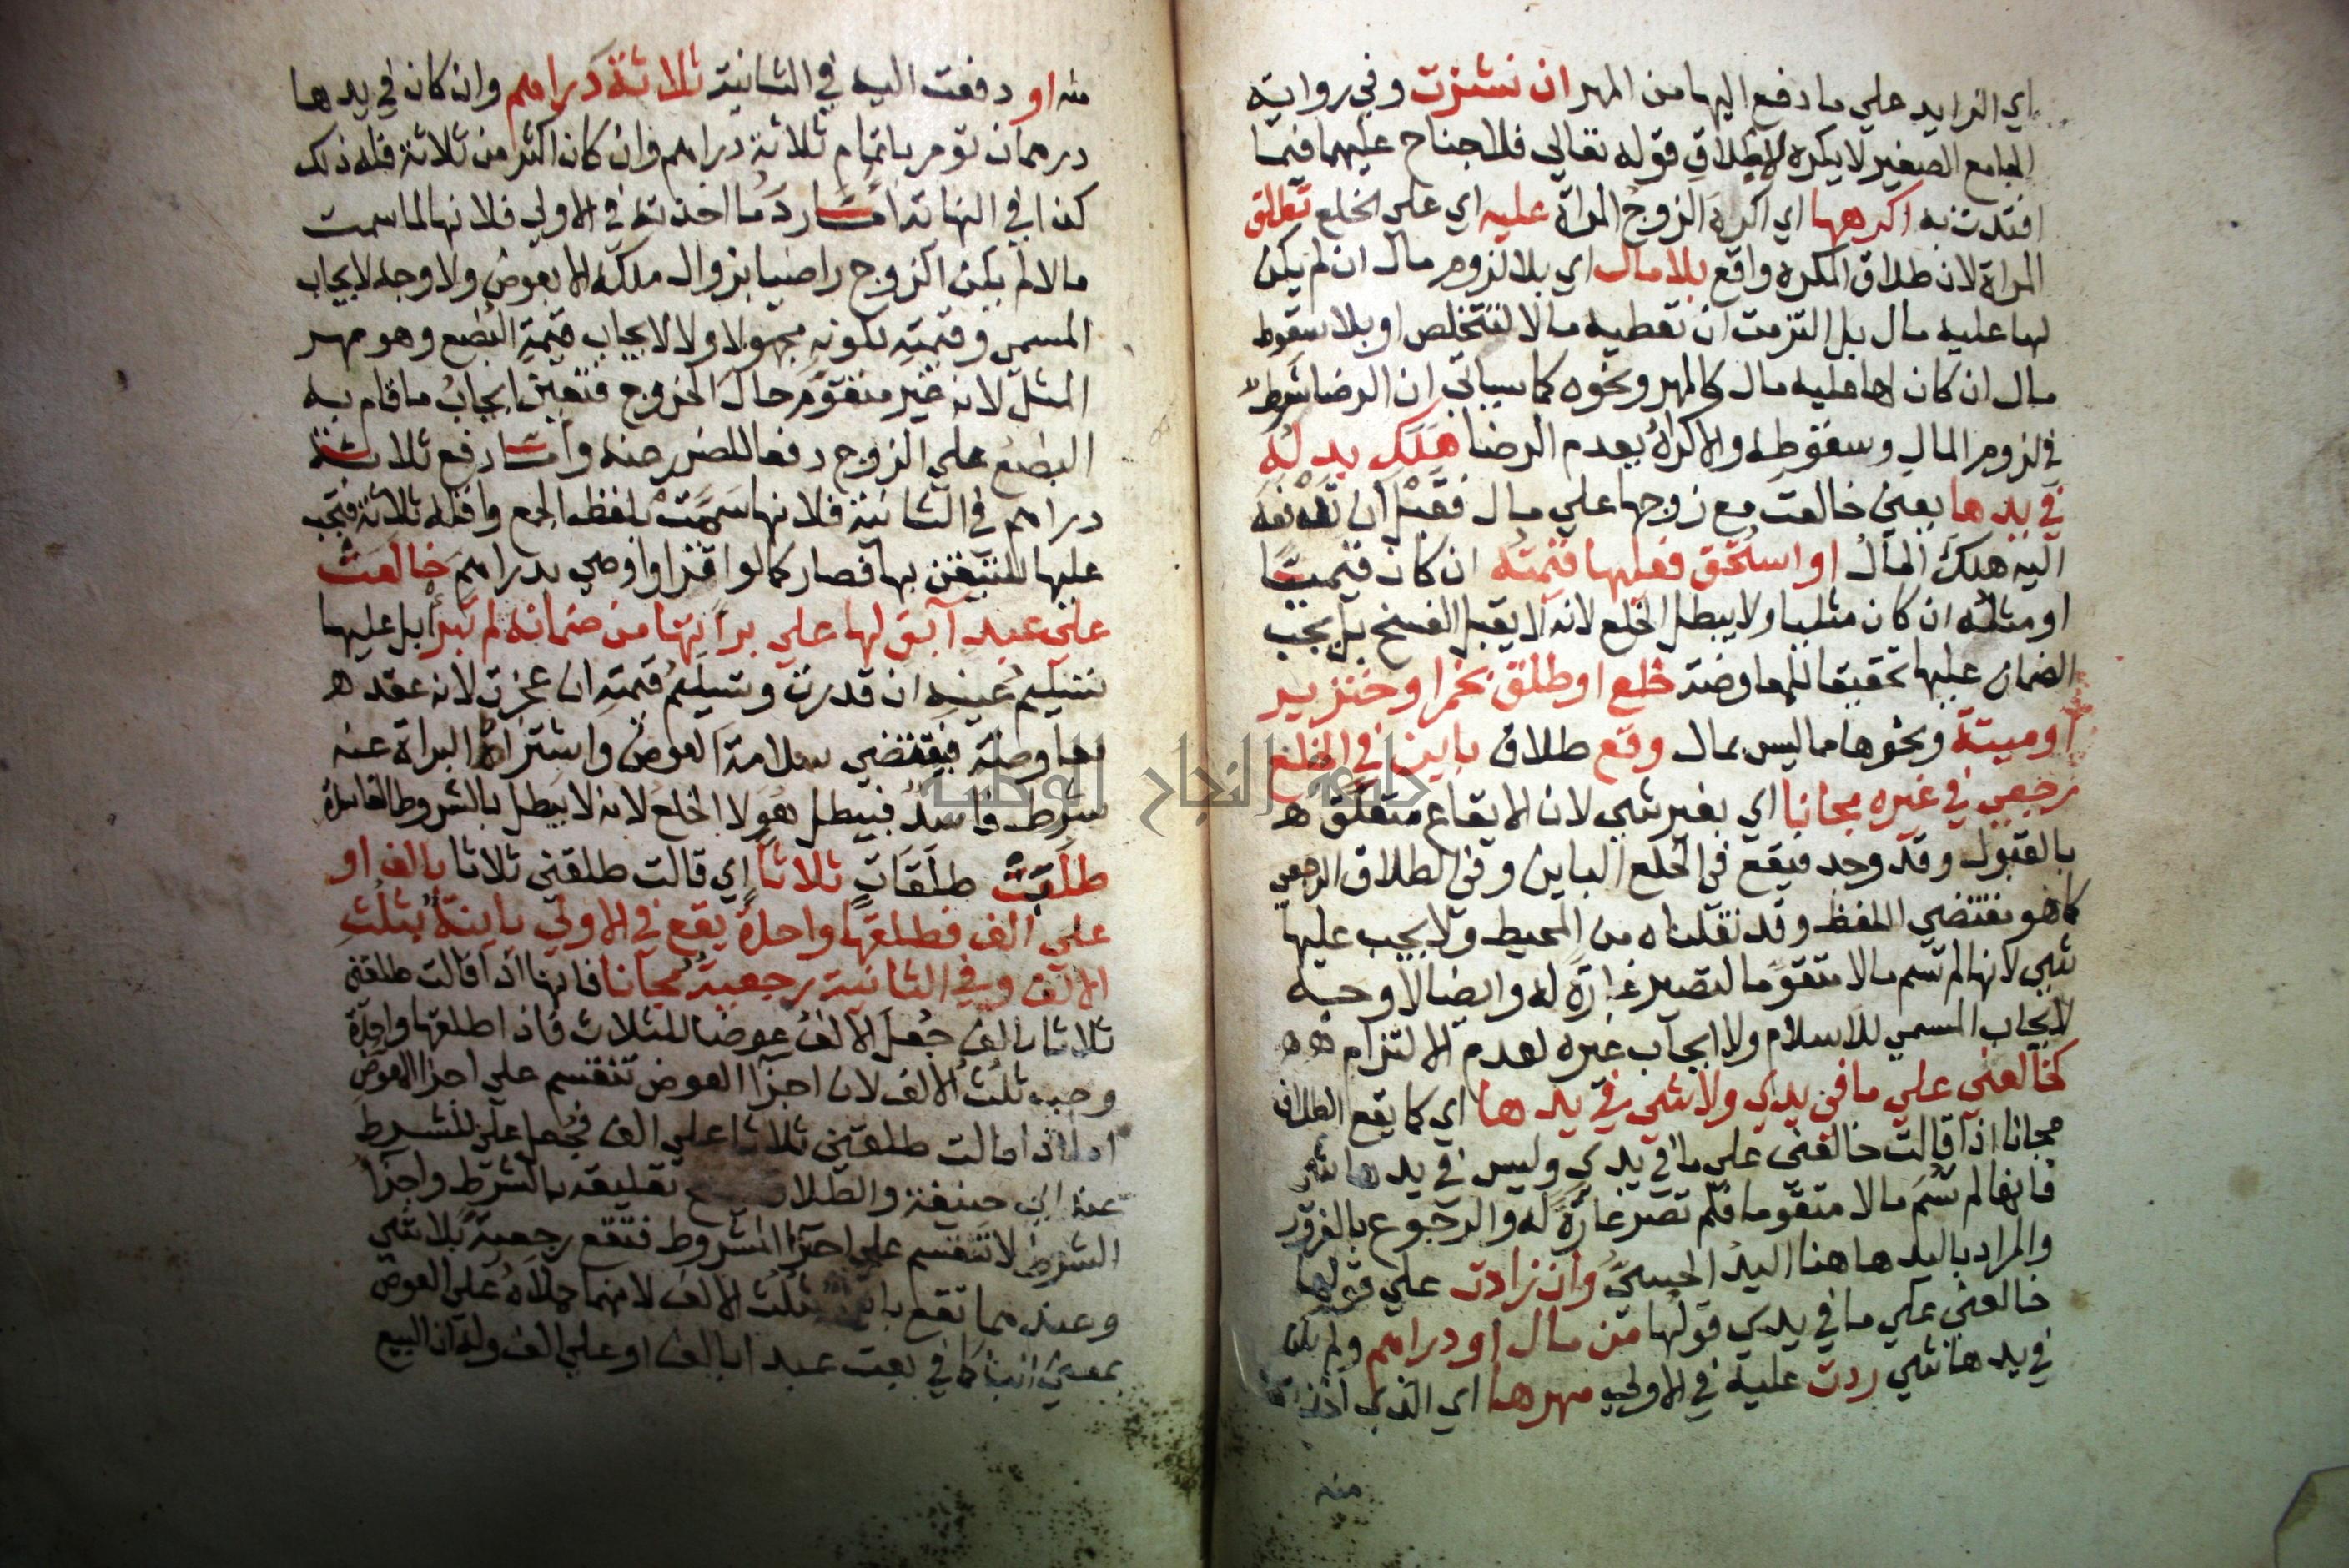 اي الزايد علي ما دفع اليها من المهر ان نشزت وفي رواية
الجامع الصغير لا يكره لاطلاق قوله تعالي فلا جناح عليهما فيما
افتدت به اكرهها اي اكره الزوج المراة عليه اي علي الخلع تطلق
المراة لان طلاق المكره واقع بلا مال اي بلا لزوم مال ان لم يكن
لها عليه مال بل التزمت ان تعطيه مالا لتتخلص او بلا سقوط
مال ان كان لها عليه مال كالمهر ونحوه كما سياتي ان الرضا شرط
في لزوم المال وسقوطه والاكراه يعدم الرضا هلك بدله
في يدها يعني خالعت مع زوجها علي مال فقبل ان تدفعه
اليه هلك المال او استحق فعليها قيمته ان كان قيميا
او مثله ان كان مثليا ولا يبطل الخلع لانه لا يقبل الفسخ بل يجب
الضمان عليها تحقيقا للمعاوضة خلع او طلق بخمر او خنزير
او ميتة ونحوها مما ليس بمال وقع طلاق باين في الخلع
رجعي في غيره مجانا اي بغير شي لان الايقاع متعلق ه
بالقبول وقد وجد فيقع في الخلع الباين وفي الطلاق الرجعي
كما هو مقتضي اللفظ وقد نقلناه من المحيط ولا يجب عليها
شي لانها لم تسم مالا متقوما لتصير غارة له وايضا لا وجه
لايجاب المسمي للاسلام ولا ايجاب غيره لعدم الالتزام ه ه
كخالعني علي ما في يدي ولا شي في يدها اي كما يقع الطلاق
مجانا اذا قالت خالعني علي ما في يدي وليس في يدها شي
فانها لم تسم مالا متقوما فلم تصر غارة له والرجوع بالغرور
والمراد باليد هاهنا اليد الحسية وان زادت علي قولها
خالعني علي ما في يدي قولها من مال او دراهم ولم يكن
في يدها شي ردت عليه في الاولي مهرها اي الذي اخذته
منه
منه او دفعت اليه في الثانية ثلاثة دراهم وان كان في يدها
درهمان تومر باتمام ثلاثة دراهم وان كان اكثر من ثلاثة فله ذلك
كذا في النهاية اما رد ما اخذته في الاولي فلانها لما سمت
مالا لم يكن الزوج راضيا بزوال ملكه الا بعوض ولا وجه لايجاب
المسمي وقيمته لكونه مجهولا ولا لايجاب قيمة البضع وهو مهر
المثل لانه غير متقوم حال الخروج فتعين ايجاب ما قام به
البضع علي الزوج دفعا للضرر عنه واما دفع ثلاثة
دراهم في الثانية فلانها سمت بلفظ الجمع واقله ثلاثة فتجب
عليها للتيقن بها فصار كما لو اقر او اوصي بدراهم خالعت
علي عبد آبق لها علي براتها من ضمانه لم تبرا بل عليها
تسليم عينه ان قدرت وتسليم قيمته ان عجزت لانه عقد ه
معاوضة فيقتضي سلامة العوض واشتراط البراة عنه
شرط فاسد فيبطل هو لا الخلع لانه لا يبطل بالشروط الفاسدة
طلقت طلقات ثلاثا اي قالت طلقني ثلاثا بالف او
علي الف فطلقها واحدة يقع في الاولي باينة بثلث
الالف وفي الثانية رجعية مجانا فانها اذا قالت طلقني
ثلاثا بالف جعل الالف عوضا للثلاث فاذا طلقها واحدة
وجب ثلث الالف لان اجزا العوض تنقسم علي اجزا المعوض
اما اذا قالت طلقني ثلاثا علي الف فجعل علي للشرط
عند ابي حنيفة والطلاق تعليقه بالشرط واجزا
الشرط لا تنقسم علي اجزا المشروط فتقع رجعية بلا شي
وعندهما تقع بثلث الالف لانهما حملاه علي العوض
بمعني البا كما في بعت عبدا بالف او علي الف وله ان البيع